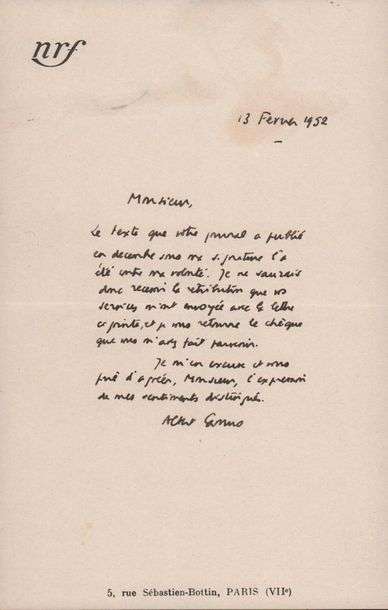 nrf
13 Février 1952
Monsieur,
Le texte que votre journal a publié
en décembre sous ma signature l'a
été contre ma volonté. Je ne saurais
donc recevoir la rétribution que vos
services m'ont envoyée avec la lettre
ci jointe, et je vous retourne le chèque
que vous m'avez fait parvenir.
Je m'en excuse et vous
prie d'agréer, Monsieur, l'expression
de mes sentiments distingués.
Albert Camus
5, rue Sébastien-Bottin, PARIS (VIIe)